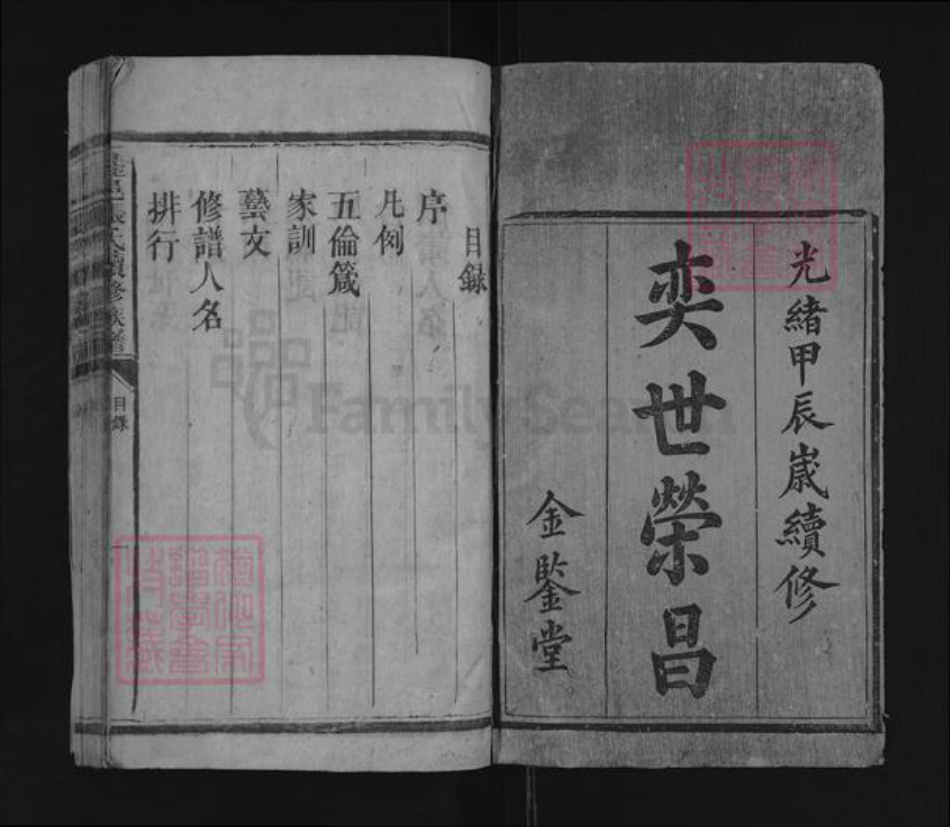 光緒甲辰歲續修
奕世榮昌
金鑒堂
目錄
序
凡例
五倫箴
家訓
藝文
修譜人名
排行
氏續修族譜
目錄
FamilySearch